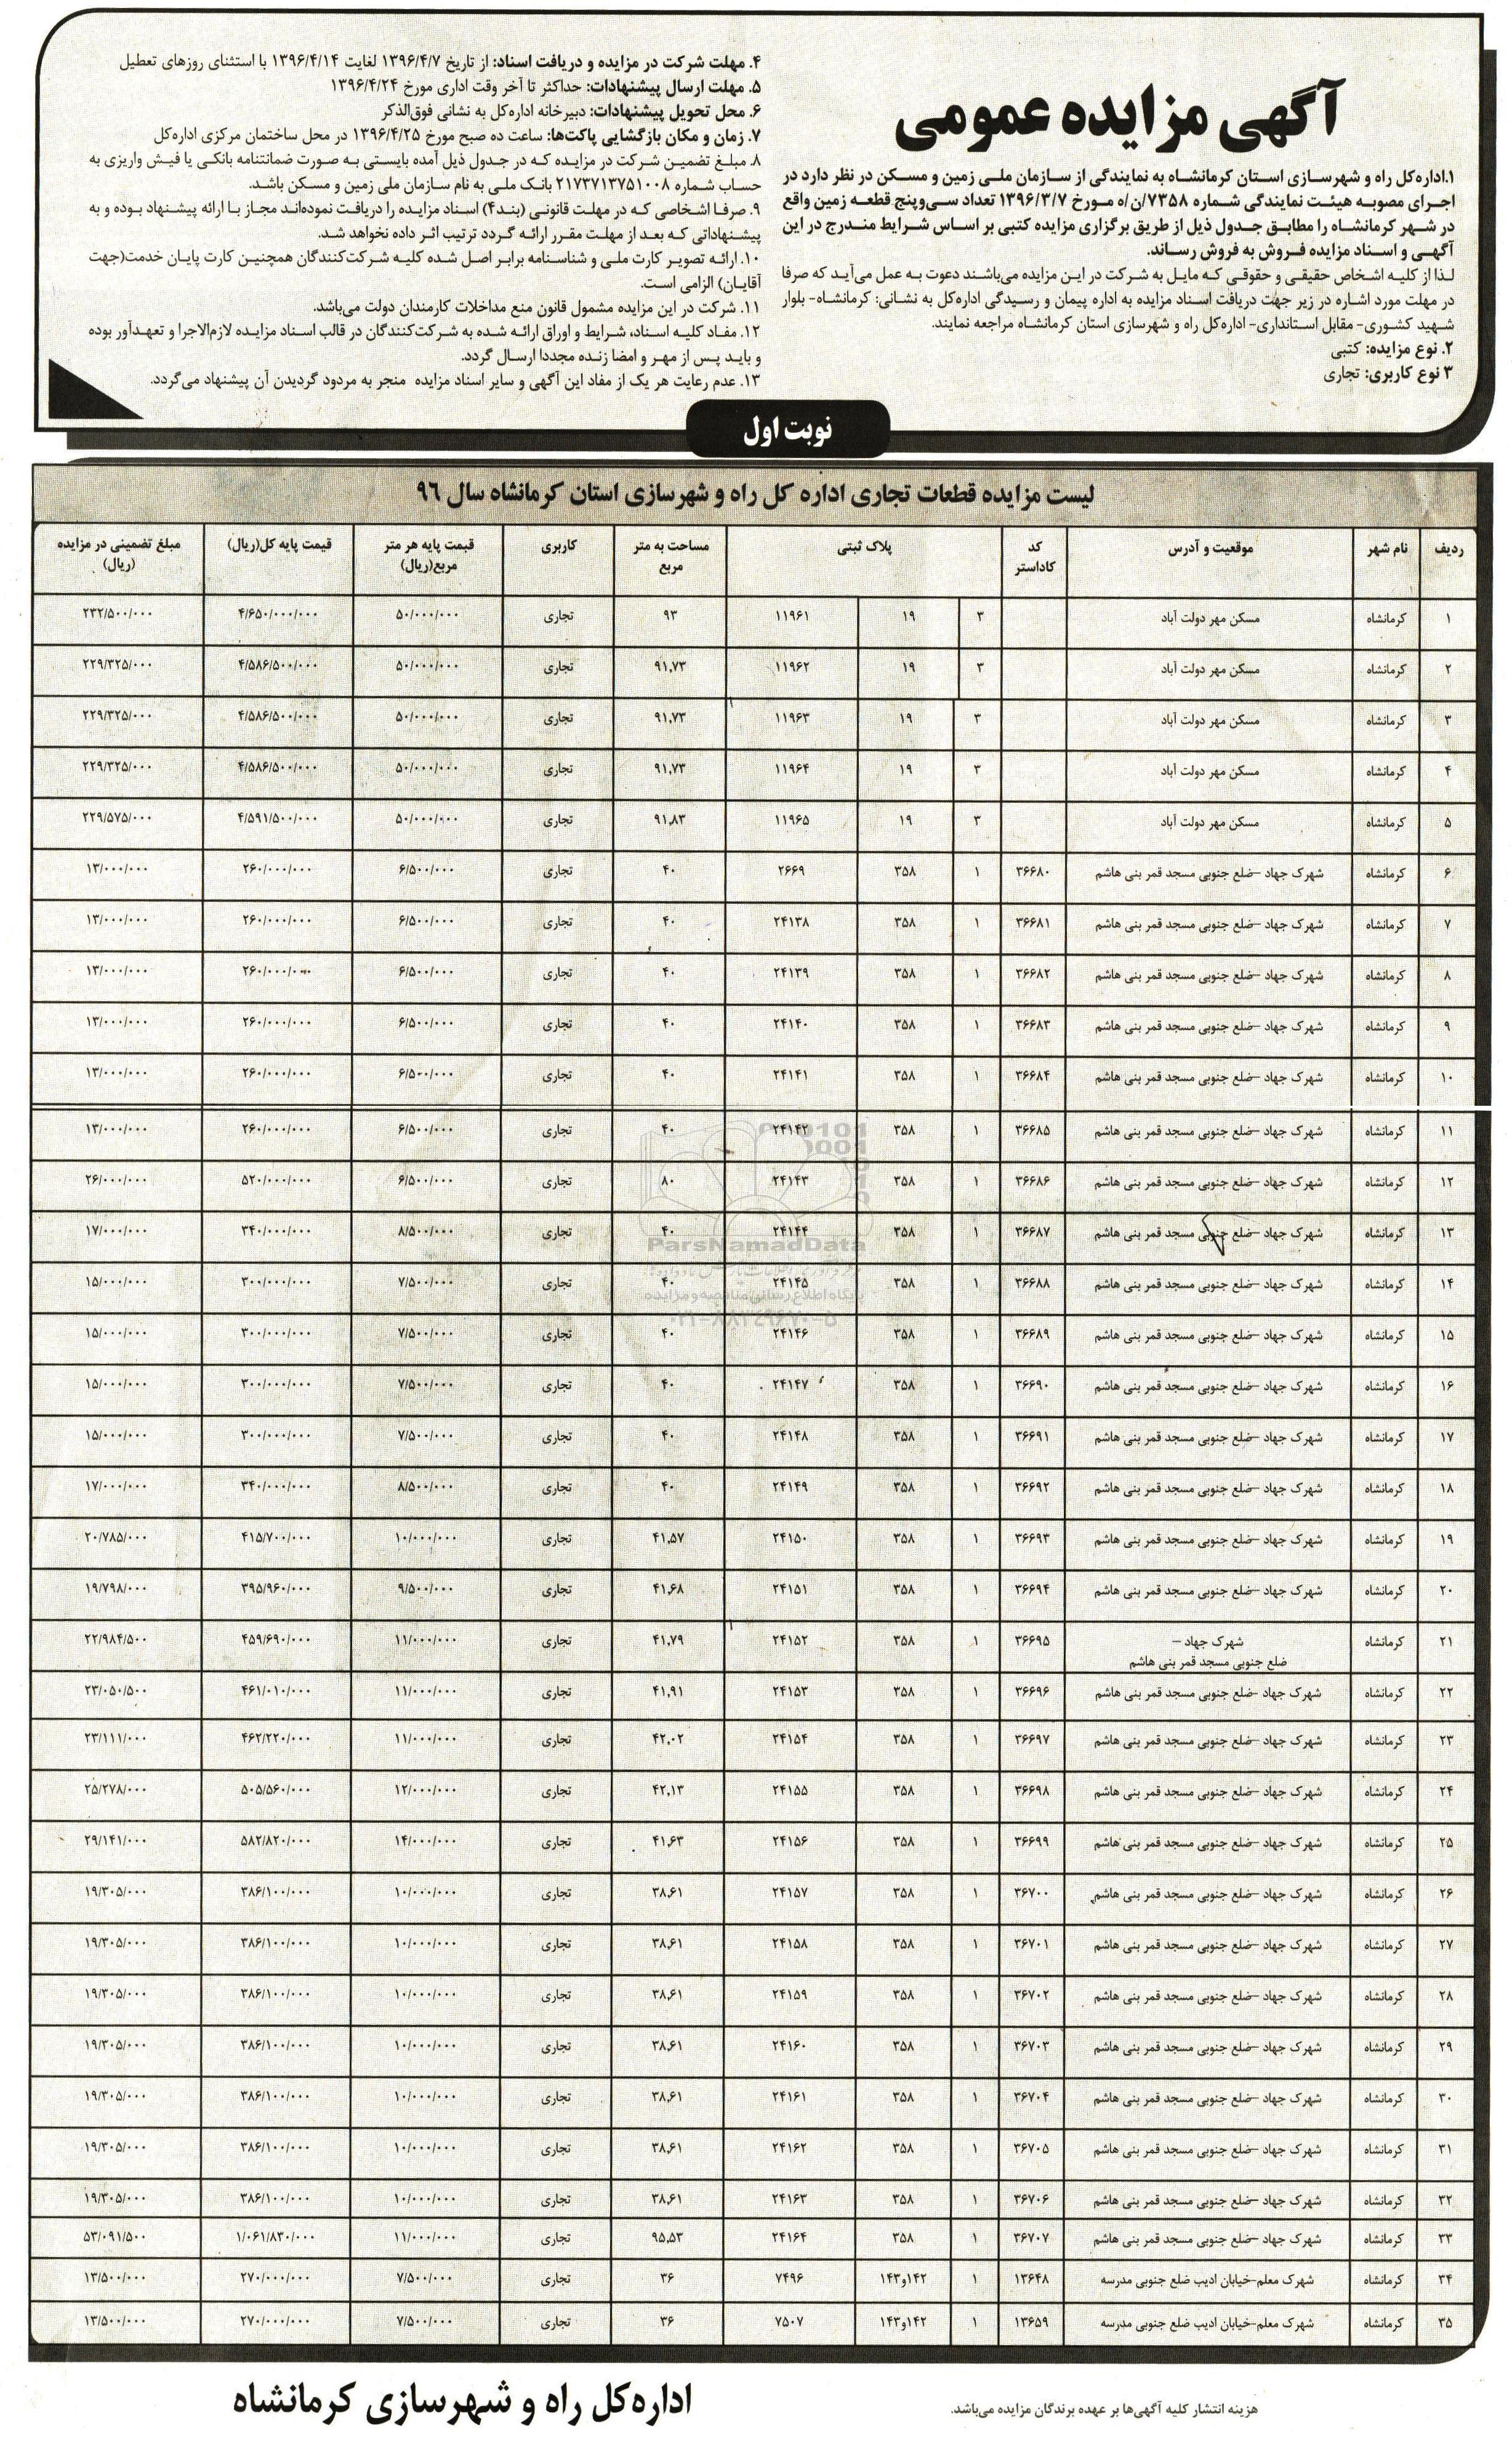 آگهی مزایده عمومی
۱.اداره‌کل راه و شهرسازی استان کرمانشاه به نمایندگی از سازمان ملی زمین و مسکن در نظر دارد در
اجرای مصوبه هیئت نمایندگی شماره ۷۳۵۸/ن/ه مورخ ۱۳۹۶/۳/۷ تعداد سی‌وپنج قطعه زمین واقع
در شهر کرمانشاه را مطابق جدول ذیل از طریق برگزاری مزایده کتبی بر اساس شرایط مندرج در این
آگهی و اسناد مزایده فروش به فروش رساند.
لذا از کلیه اشخاص حقیقی و حقوقی که مایل به شرکت در این مزایده می‌باشند دعوت به عمل می‌آید که صرفا
در مهلت مورد اشاره در زیر جهت دریافت اسناد مزایده به اداره پیمان و رسیدگی اداره‌کل به نشانی: کرمانشاه- بلوار
شهید کشوری- مقابل استانداری- اداره‌کل راه و شهرسازی استان کرمانشاه مراجعه نمایند.
۲. نوع مزایده: کتبی
۳ نوع کاربری: تجاری
۴. مهلت شرکت در مزایده و دریافت اسناد: از تاریخ ۱۳۹۶/۴/۷ لغایت ۱۳۹۶/۴/۱۴ با استثنای روزهای تعطیل
۵. مهلت ارسال پیشنهادات: حداکثر تا آخر وقت اداری مورخ ۱۳۹۶/۴/۲۴
۶. محل تحویل پیشنهادات: دبیرخانه اداره‌کل به نشانی فوق‌الذکر
۷. زمان و مکان بازگشایی پاکت‌ها: ساعت ده صبح مورخ ۱۳۹۶/۴/۲۵ در محل ساختمان مرکزی اداره‌کل
۸. مبلغ تضمین شرکت در مزایده که در جدول ذیل آمده بایستی به صورت ضمانتنامه بانکی یا فیش واریزی به
حساب شماره ۲۱۷۳۷۱۳۷۵۱۰۰۸ بانک ملی به نام سازمان ملی زمین و مسکن باشد.
۹. صرفا اشخاصی که در مهلت قانونی (بند۴) اسناد مزایده را دریافت نموده‌اند مجاز با ارائه پیشنهاد بوده و به
پیشنهاداتی که بعد از مهلت مقرر ارائه گردد ترتیب اثر داده نخواهد شد.
۱۰. ارائه تصویر کارت ملی و شناسنامه برابر اصل شده کلیه شرکت‌کنندگان همچنین کارت پایان خدمت(جهت
آقایان) الزامی است.
۱۱. شرکت در این مزایده مشمول قانون منع مداخلات کارمندان دولت می‌باشد.
۱۲. مفاد کلیه اسناد، شرایط و اوراق ارائه شده به شرکت‌کنندگان در قالب اسناد مزایده لازم‌الاجرا و تعهدآور بوده
و باید پس از مهر و امضا زنده مجددا ارسال گردد.
۱۳. عدم رعایت هر یک از مفاد این آگهی و سایر اسناد مزایده منجر به مردود گردیدن آن پیشنهاد می‌گردد.
نوبت اول
لیست مزایده قطعات تجاری اداره کل راه و شهرسازی استان کرمانشاه سال ۹۶
ردیف نام شهر موقعیت و آدرس کد کاداستر پلاک ثبتی مساحت به متر مربع کاربری قیمت پایه هر متر مربع(ریال) قیمت پایه کل(ریال) مبلغ تضمینی در مزایده (ریال)
۱ کرمانشاه مسکن مهر دولت آباد ۳ ۱۹ ۱۱۹۶۱ ۹۳ تجاری ۵۰/۰۰۰/۰۰۰ ۴/۶۵۰/۰۰۰/۰۰۰ ۲۳۲/۵۰۰/۰۰۰
۲ کرمانشاه مسکن مهر دولت آباد ۳ ۱۹ ۱۱۹۶۲ ۹۱,۷۳ تجاری ۵۰/۰۰۰/۰۰۰ ۴/۵۸۶/۵۰۰/۰۰۰ ۲۲۹/۳۲۵/۰۰۰
۳ کرمانشاه مسکن مهر دولت آباد ۳ ۱۹ ۱۱۹۶۳ ۹۱,۷۳ تجاری ۵۰/۰۰۰/۰۰۰ ۴/۵۸۶/۵۰۰/۰۰۰ ۲۲۹/۳۲۵/۰۰۰
۴ کرمانشاه مسکن مهر دولت آباد ۳ ۱۹ ۱۱۹۶۴ ۹۱,۷۳ تجاری ۵۰/۰۰۰/۰۰۰ ۴/۵۸۶/۵۰۰/۰۰۰ ۲۲۹/۳۲۵/۰۰۰
۵ کرمانشاه مسکن مهر دولت آباد ۳ ۱۹ ۱۱۹۶۵ ۹۱,۸۳ تجاری ۵۰/۰۰۰/۰۰۰ ۴/۵۹۱/۵۰۰/۰۰۰ ۲۲۹/۵۷۵/۰۰۰
۶ کرمانشاه شهرک جهاد –ضلع جنوبی مسجد قمر بنی هاشم ۳۶۶۸۰ ۱ ۳۵۸ ۲۶۶۹ ۴۰ تجاری ۶/۵۰۰/۰۰۰ ۲۶۰/۰۰۰/۰۰۰ ۱۳/۰۰۰/۰۰۰
۷ کرمانشاه شهرک جهاد –ضلع جنوبی مسجد قمر بنی هاشم ۳۶۶۸۱ ۱ ۳۵۸ ۲۴۱۳۸ ۴۰ تجاری ۶/۵۰۰/۰۰۰ ۲۶۰/۰۰۰/۰۰۰ ۱۳/۰۰۰/۰۰۰
۸ کرمانشاه شهرک جهاد –ضلع جنوبی مسجد قمر بنی هاشم ۳۶۶۸۲ ۱ ۳۵۸ ۲۴۱۳۹ ۴۰ تجاری ۶/۵۰۰/۰۰۰ ۲۶۰/۰۰۰/۰۰۰ ۱۳/۰۰۰/۰۰۰
۹ کرمانشاه شهرک جهاد –ضلع جنوبی مسجد قمر بنی هاشم ۳۶۶۸۳ ۱ ۳۵۸ ۲۴۱۴۰ ۴۰ تجاری ۶/۵۰۰/۰۰۰ ۲۶۰/۰۰۰/۰۰۰ ۱۳/۰۰۰/۰۰۰
۱۰ کرمانشاه شهرک جهاد –ضلع جنوبی مسجد قمر بنی هاشم ۳۶۶۸۴ ۱ ۳۵۸ ۲۴۱۴۱ ۴۰ تجاری ۶/۵۰۰/۰۰۰ ۲۶۰/۰۰۰/۰۰۰ ۱۳/۰۰۰/۰۰۰
۱۱ کرمانشاه شهرک جهاد –ضلع جنوبی مسجد قمر بنی هاشم ۳۶۶۸۵ ۱ ۳۵۸ ۲۴۱۴۲ ۴۰ تجاری ۶/۵۰۰/۰۰۰ ۲۶۰/۰۰۰/۰۰۰ ۱۳/۰۰۰/۰۰۰
۱۲ کرمانشاه شهرک جهاد –ضلع جنوبی مسجد قمر بنی هاشم ۳۶۶۸۶ ۱ ۳۵۸ ۲۴۱۴۳ ۸۰ تجاری ۶/۵۰۰/۰۰۰ ۵۲۰/۰۰۰/۰۰۰ ۲۶/۰۰۰/۰۰۰
۱۳ کرمانشاه شهرک جهاد –ضلع جنوبی مسجد قمر بنی هاشم ۳۶۶۸۷ ۱ ۳۵۸ ۲۴۱۴۴ ۴۰ تجاری ۸/۵۰۰/۰۰۰ ۳۴۰/۰۰۰/۰۰۰ ۱۷/۰۰۰/۰۰۰
۱۴ کرمانشاه شهرک جهاد –ضلع جنوبی مسجد قمر بنی هاشم ۳۶۶۸۸ ۱ ۳۵۸ ۲۴۱۴۵ ۴۰ تجاری ۷/۵۰۰/۰۰۰ ۳۰۰/۰۰۰/۰۰۰ ۱۵/۰۰۰/۰۰۰
۱۵ کرمانشاه شهرک جهاد –ضلع جنوبی مسجد قمر بنی هاشم ۳۶۶۸۹ ۱ ۳۵۸ ۲۴۱۴۶ ۴۰ تجاری ۷/۵۰۰/۰۰۰ ۳۰۰/۰۰۰/۰۰۰ ۱۵/۰۰۰/۰۰۰
۱۶ کرمانشاه شهرک جهاد –ضلع جنوبی مسجد قمر بنی هاشم ۳۶۶۹۰ ۱ ۳۵۸ ۲۴۱۴۷ ۴۰ تجاری ۷/۵۰۰/۰۰۰ ۳۰۰/۰۰۰/۰۰۰ ۱۵/۰۰۰/۰۰۰
۱۷ کرمانشاه شهرک جهاد –ضلع جنوبی مسجد قمر بنی هاشم ۳۶۶۹۱ ۱ ۳۵۸ ۲۴۱۴۸ ۴۰ تجاری ۷/۵۰۰/۰۰۰ ۳۰۰/۰۰۰/۰۰۰ ۱۵/۰۰۰/۰۰۰
۱۸ کرمانشاه شهرک جهاد –ضلع جنوبی مسجد قمر بنی هاشم ۳۶۶۹۲ ۱ ۳۵۸ ۲۴۱۴۹ ۴۰ تجاری ۸/۵۰۰/۰۰۰ ۳۴۰/۰۰۰/۰۰۰ ۱۷/۰۰۰/۰۰۰
۱۹ کرمانشاه شهرک جهاد –ضلع جنوبی مسجد قمر بنی هاشم ۳۶۶۹۳ ۱ ۳۵۸ ۲۴۱۵۰ ۴۱,۵۷ تجاری ۱۰/۰۰۰/۰۰۰ ۴۱۵/۷۰۰/۰۰۰ ۲۰/۷۸۵/۰۰۰
۲۰ کرمانشاه شهرک جهاد –ضلع جنوبی مسجد قمر بنی هاشم ۳۶۶۹۴ ۱ ۳۵۸ ۲۴۱۵۱ ۴۱,۶۸ تجاری ۹/۵۰۰/۰۰۰ ۳۹۵/۹۶۰/۰۰۰ ۱۹/۷۹۸/۰۰۰
۲۱ کرمانشاه شهرک جهاد – ضلع جنوبی مسجد قمر بنی هاشم ۳۶۶۹۵ ۱ ۳۵۸ ۲۴۱۵۲ ۴۱,۷۹ تجاری ۱۱/۰۰۰/۰۰۰ ۴۵۹/۶۹۰/۰۰۰ ۲۲/۹۸۴/۵۰۰
۲۲ کرمانشاه شهرک جهاد –ضلع جنوبی مسجد قمر بنی هاشم ۳۶۶۹۶ ۱ ۳۵۸ ۲۴۱۵۳ ۴۱,۹۱ تجاری ۱۱/۰۰۰/۰۰۰ ۴۶۱/۰۱۰/۰۰۰ ۲۳/۰۵۰/۵۰۰
۲۳ کرمانشاه شهرک جهاد –ضلع جنوبی مسجد قمر بنی هاشم ۳۶۶۹۷ ۱ ۳۵۸ ۲۴۱۵۴ ۴۲,۰۲ تجاری ۱۱/۰۰۰/۰۰۰ ۴۶۲/۲۲۰/۰۰۰ ۲۳/۱۱۱/۰۰۰
۲۴ کرمانشاه شهرک جهاد –ضلع جنوبی مسجد قمر بنی هاشم ۳۶۶۹۸ ۱ ۳۵۸ ۲۴۱۵۵ ۴۲,۱۳ تجاری ۱۲/۰۰۰/۰۰۰ ۵۰۵/۵۶۰/۰۰۰ ۲۵/۲۷۸/۰۰۰
۲۵ کرمانشاه شهرک جهاد –ضلع جنوبی مسجد قمر بنی هاشم ۳۶۶۹۹ ۱ ۳۵۸ ۲۴۱۵۶ ۴۱,۶۳ تجاری ۱۴/۰۰۰/۰۰۰ ۵۸۲/۸۲۰/۰۰۰ ۲۹/۱۴۱/۰۰۰
۲۶ کرمانشاه شهرک جهاد –ضلع جنوبی مسجد قمر بنی هاشم ۳۶۷۰۰ ۱ ۳۵۸ ۲۴۱۵۷ ۳۸,۶۱ تجاری ۱۰/۰۰۰/۰۰۰ ۳۸۶/۱۰۰/۰۰۰ ۱۹/۳۰۵/۰۰۰
۲۷ کرمانشاه شهرک جهاد –ضلع جنوبی مسجد قمر بنی هاشم ۳۶۷۰۱ ۱ ۳۵۸ ۲۴۱۵۸ ۳۸,۶۱ تجاری ۱۰/۰۰۰/۰۰۰ ۳۸۶/۱۰۰/۰۰۰ ۱۹/۳۰۵/۰۰۰
۲۸ کرمانشاه شهرک جهاد –ضلع جنوبی مسجد قمر بنی هاشم ۳۶۷۰۲ ۱ ۳۵۸ ۲۴۱۵۹ ۳۸,۶۱ تجاری ۱۰/۰۰۰/۰۰۰ ۳۸۶/۱۰۰/۰۰۰ ۱۹/۳۰۵/۰۰۰
۲۹ کرمانشاه شهرک جهاد –ضلع جنوبی مسجد قمر بنی هاشم ۳۶۷۰۳ ۱ ۳۵۸ ۲۴۱۶۰ ۳۸,۶۱ تجاری ۱۰/۰۰۰/۰۰۰ ۳۸۶/۱۰۰/۰۰۰ ۱۹/۳۰۵/۰۰۰
۳۰ کرمانشاه شهرک جهاد –ضلع جنوبی مسجد قمر بنی هاشم ۳۶۷۰۴ ۱ ۳۵۸ ۲۴۱۶۱ ۳۸,۶۱ تجاری ۱۰/۰۰۰/۰۰۰ ۳۸۶/۱۰۰/۰۰۰ ۱۹/۳۰۵/۰۰۰
۳۱ کرمانشاه شهرک جهاد –ضلع جنوبی مسجد قمر بنی هاشم ۳۶۷۰۵ ۱ ۳۵۸ ۲۴۱۶۲ ۳۸,۶۱ تجاری ۱۰/۰۰۰/۰۰۰ ۳۸۶/۱۰۰/۰۰۰ ۱۹/۳۰۵/۰۰۰
۳۲ کرمانشاه شهرک جهاد –ضلع جنوبی مسجد قمر بنی هاشم ۳۶۷۰۶ ۱ ۳۵۸ ۲۴۱۶۳ ۳۸,۶۱ تجاری ۱۰/۰۰۰/۰۰۰ ۳۸۶/۱۰۰/۰۰۰ ۱۹/۳۰۵/۰۰۰
۳۳ کرمانشاه شهرک جهاد –ضلع جنوبی مسجد قمر بنی هاشم ۳۶۷۰۷ ۱ ۳۵۸ ۲۴۱۶۴ ۹۵,۵۳ تجاری ۱۱/۰۰۰/۰۰۰ ۱/۰۶۱/۸۳۰/۰۰۰ ۵۳/۰۹۱/۵۰۰
۳۴ کرمانشاه شهرک معلم-خیابان ادیب ضلع جنوبی مدرسه ۱۳۶۴۸ ۱ ۱۴۲و۱۴۳ ۷۴۹۶ ۳۶ تجاری ۷/۵۰۰/۰۰۰ ۲۷۰/۰۰۰/۰۰۰ ۱۳/۵۰۰/۰۰۰
۳۵ کرمانشاه شهرک معلم-خیابان ادیب ضلع جنوبی مدرسه ۱۳۶۵۹ ۱ ۱۴۲و۱۴۳ ۷۵۰۷ ۳۶ تجاری ۷/۵۰۰/۰۰۰ ۲۷۰/۰۰۰/۰۰۰ ۱۳/۵۰۰/۰۰۰
ParsNamadData
پایگاه اطلاع رسانی مناقصه و مزایده
۰۲۱-۸۸۳۴۹۶۷۰-۵
هزینه انتشار کلیه آگهی‌ها بر عهده برندگان مزایده می‌باشد.
اداره‌کل راه و شهرسازی کرمانشاه